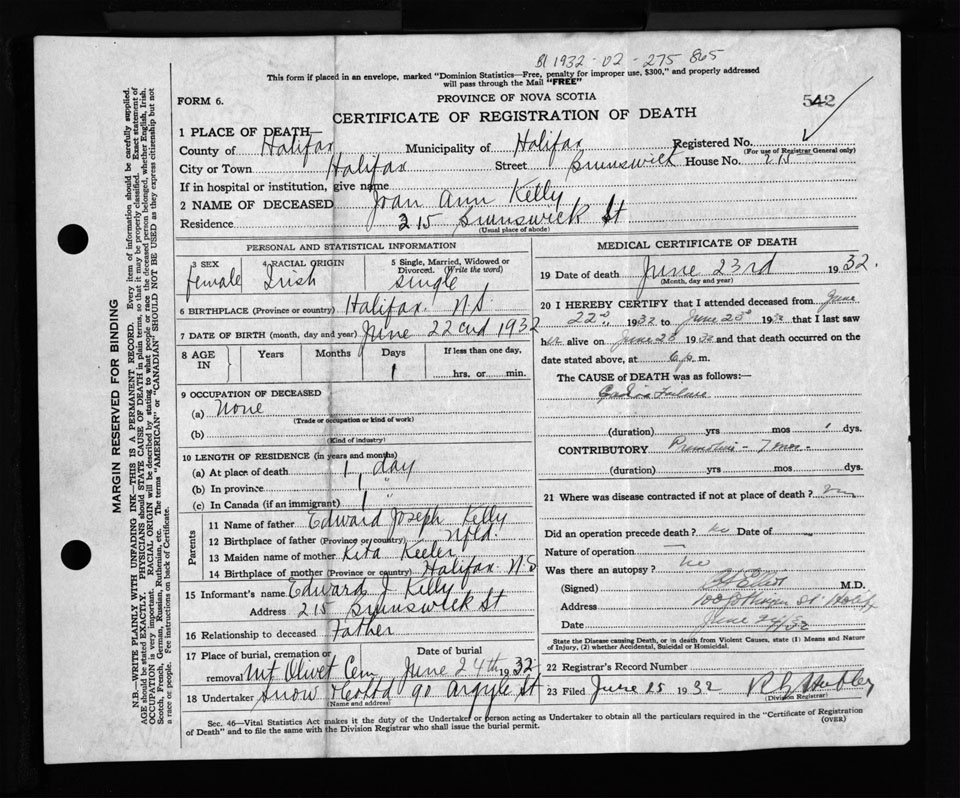 1932 - 02 - 275
This form if placed in an envelope, marked "Dominion Statistics—Free, penalty for improper use, $300," and properly addressed
will pass through the Mail "FREE"
FORM 6.
PROVINCE OF NOVA SCOTIA
542
CERTIFICATE OF REGISTRATION OF DEATH
1 PLACE OF DEATH—
County of Halifax Municipality of Halifax Registered No.
(For use of Registrar General only)
City or Town Halifax Street Brunswick House No. 215
If in hospital or institution, give name
2 NAME OF DECEASED Joan Ann Kelly
Residence 215 Brunswick St
(Usual place of abode)
PERSONAL AND STATISTICAL INFORMATION
3 SEX female
4 RACIAL ORIGIN Irish
5 Single, Married, Widowed or
Divorced. (Write the word)
single
6 BIRTHPLACE (Province or country) Halifax N.S.
7 DATE OF BIRTH (month, day and year) June 22nd 1932
8 AGE IN Years Months Days 1 If less than one day,
hrs. or min.
9 OCCUPATION OF DECEASED
(a) None
(Trade or occupation or kind of work)
(b)
(Kind of industry)
10 LENGTH OF RESIDENCE (in years and months)
(a) At place of death 1 day
(b) In province 1 "
(c) In Canada (if an immigrant) 1
Parents
11 Name of father Edward Joseph Kelly
12 Birthplace of father (Province or country) Nfld.
13 Maiden name of mother Rita Keeler
14 Birthplace of mother (Province or country) Halifax N.S
15 Informant's name Edward J Kelly
Address 215 Brunswick St
16 Relationship to deceased Father
17 Place of burial, cremation or
removal Mt Olivet Cem
Date of burial
June 24th 1932
18 Undertaker Snow & Co Ltd 90 Argyle St
(Name and address)
MEDICAL CERTIFICATE OF DEATH
19 Date of death June 23rd 1932.
(Month, day and year)
20 I HEREBY CERTIFY that I attended deceased from June
22nd, 1932 to June 23d 1932 that I last saw
her alive on June 23 1932 and that death occurred on the
date stated above, at 6 p. m.
The CAUSE OF DEATH was as follows:—
Cardiac Failure
(duration) yrs mos 1 dys.
CONTRIBUTORY 7 mos.
(duration) yrs mos dys.
21 Where was disease contracted if not at place of death?
Did an operation precede death? no Date of
Nature of operation
Was there an autopsy? no
(Signed) M.D.
Address
Date June 24/32
State the Disease causing Death, or in death from Violent Causes, state (1) Means and Nature
of Injury, (2) whether Accidental, Suicidal or Homicidal.
22 Registrar's Record Number
23 Filed June 25 1932
(Division Registrar)
Sec. 46—Vital Statistics Act makes it the duty of the Undertaker or person acting as Undertaker to obtain all the particulars required in the "Certificate of Registration
of Death" and to file the same with the Division Registrar who shall issue the burial permit.
(OVER)
MARGIN RESERVED FOR BINDING
N.B.—WRITE PLAINLY WITH UNFADING INK—THIS IS A PERMANENT RECORD. Every item of information should be carefully supplied.
AGE should be stated EXACTLY. PHYSICIANS should STATE CAUSE OF DEATH in plain terms, so that it may be properly classified. Exact statement of
OCCUPATION is very important. RACIAL ORIGIN will be described by stating to what people or race the deceased person belonged, whether English, Irish,
Scotch, French, German, Russian, Ruthenian, etc. The terms "AMERICAN" or "CANADIAN" SHOULD NOT BE USED as they express citizenship but not
a race or people. Fee instructions on back of Certificate.